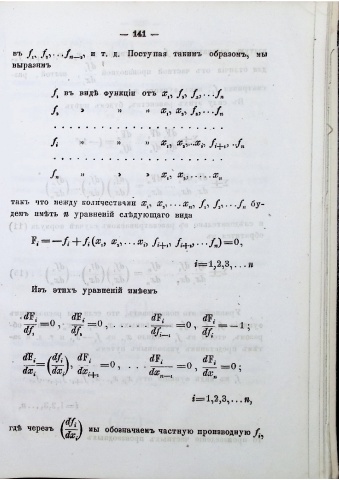 — 141 —
въ f₁, f₂,...fₙ₋₂, и т. д. Поступая такимъ образомъ, мы
выразимъ
f₁ въ видѣ функціи отъ x₁, f₂, f₃,...fₙ
f₂ » » » x₁, x₂, f₃,...fₙ
. . . . . . . . . . . . . . . . . . . . . . . .
fᵢ » » » x₁, x₂,...xᵢ, fᵢ₊₁,..fₙ
. . . . . . . . . . . . . . . . . . . . . . . .
fₙ » » » x₁, x₂,.....xₙ
такъ что между количествами x₁, x₂,...xₙ, f₁, f₂,...fₙ бу-
демъ имѣть n уравненій слѣдующаго вида
Fᵢ=—fᵢ+fᵢ(x₁, x₂,...xᵢ, fᵢ₊₁, fᵢ₊₂,...fₙ)=0,
i=1,2,3,...n
Изъ этихъ уравненій имѣемъ
dFᵢ/df₁=0, dFᵢ/df₂=0, ..... dFᵢ/dfᵢ₋₁=0, dFᵢ/dfᵢ=—1;
dFᵢ/dxᵢ=(dfᵢ/dxᵢ), dFᵢ/dxᵢ₊₁=0, ... dFᵢ/dxₙ₋₁=0, dFᵢ/dxₙ=0;
i=1,2,3,...n,
гдѣ черезъ (dfᵢ/dxᵢ) мы обозначаемъ частную производную fᵢ,